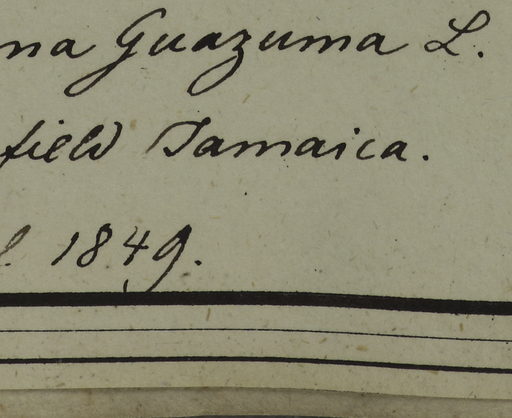 na Guazuma L.
field Jamaica.
l 1849.